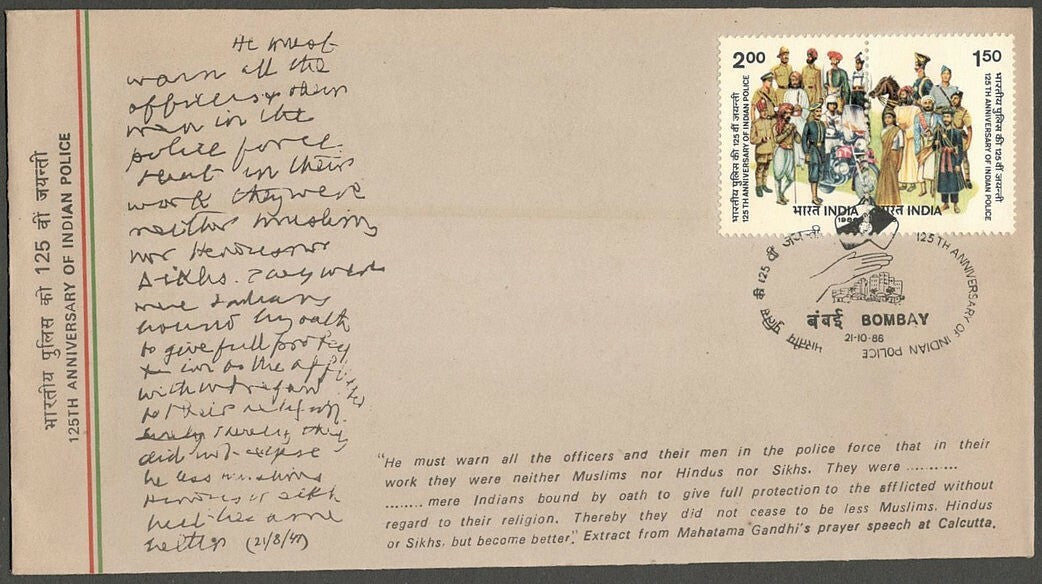 भारतीय पुलिस की 125 वीं जयन्ती
125TH ANNIVERSARY OF INDIAN POLICE
He must
warn all the
officers & their
men in the
police force
that in their
work they were
neither Muslims
nor Hindus nor
Sikhs. They were
mere Indians
bound by oath
to give full protec
tion to the afflicted
without regard
to their religion
Thereby they
did not cease
be less Muslims
Hindus or Sikh
but became
better (21/8/47)
2.00
भारतीय पुलिस की 125 वीं जयन्ती
125TH ANNIVERSARY OF INDIAN POLICE
भारत INDIA
1986
1.50
भारतीय पुलिस की 125 वीं जयन्ती
125TH ANNIVERSARY OF INDIAN POLICE
भारत INDIA
भारतीय पुलिस की 125 वीं जयन्ती
125TH ANNIVERSARY OF INDIAN POLICE
बंबई BOMBAY
21-10-86
"He must warn all the officers and their men in the police force that in their
work they were neither Muslims nor Hindus nor Sikhs. They were ..........
........ mere Indians bound by oath to give full protection to the afflicted without
regard to their religion. Thereby they did not cease to be less Muslims, Hindus
or Sikhs, but become better." Extract from Mahatama Gandhi's prayer speech at Calcutta.